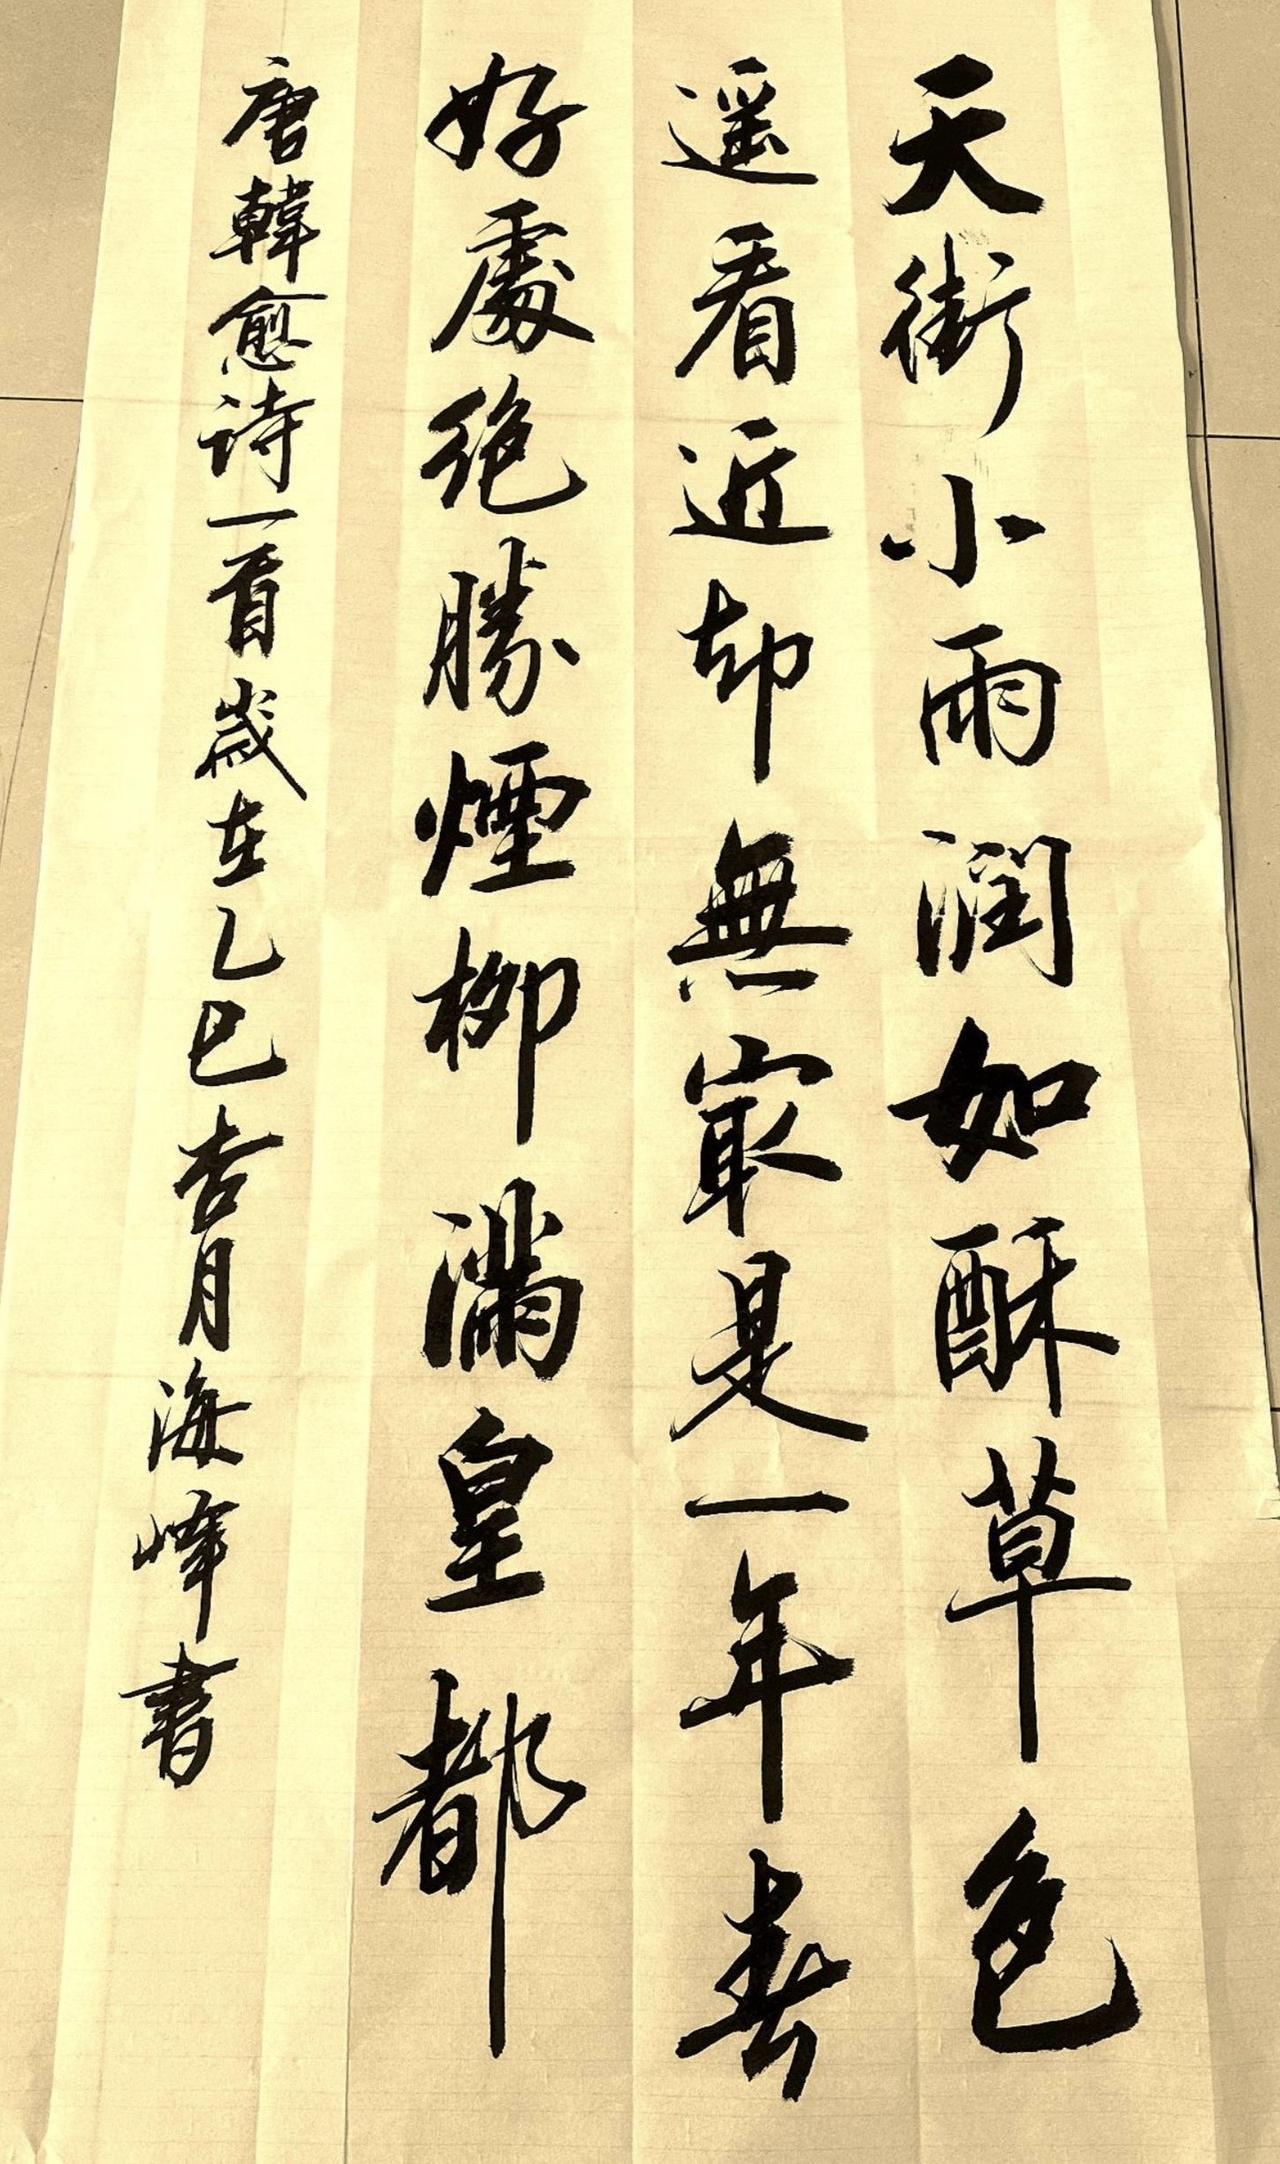 天街小雨潤如酥草色
遥看近却無冣是一年春
好處絶勝煙柳滿皇都
唐韓愈诗一首歲在乙巳吉月海峰書